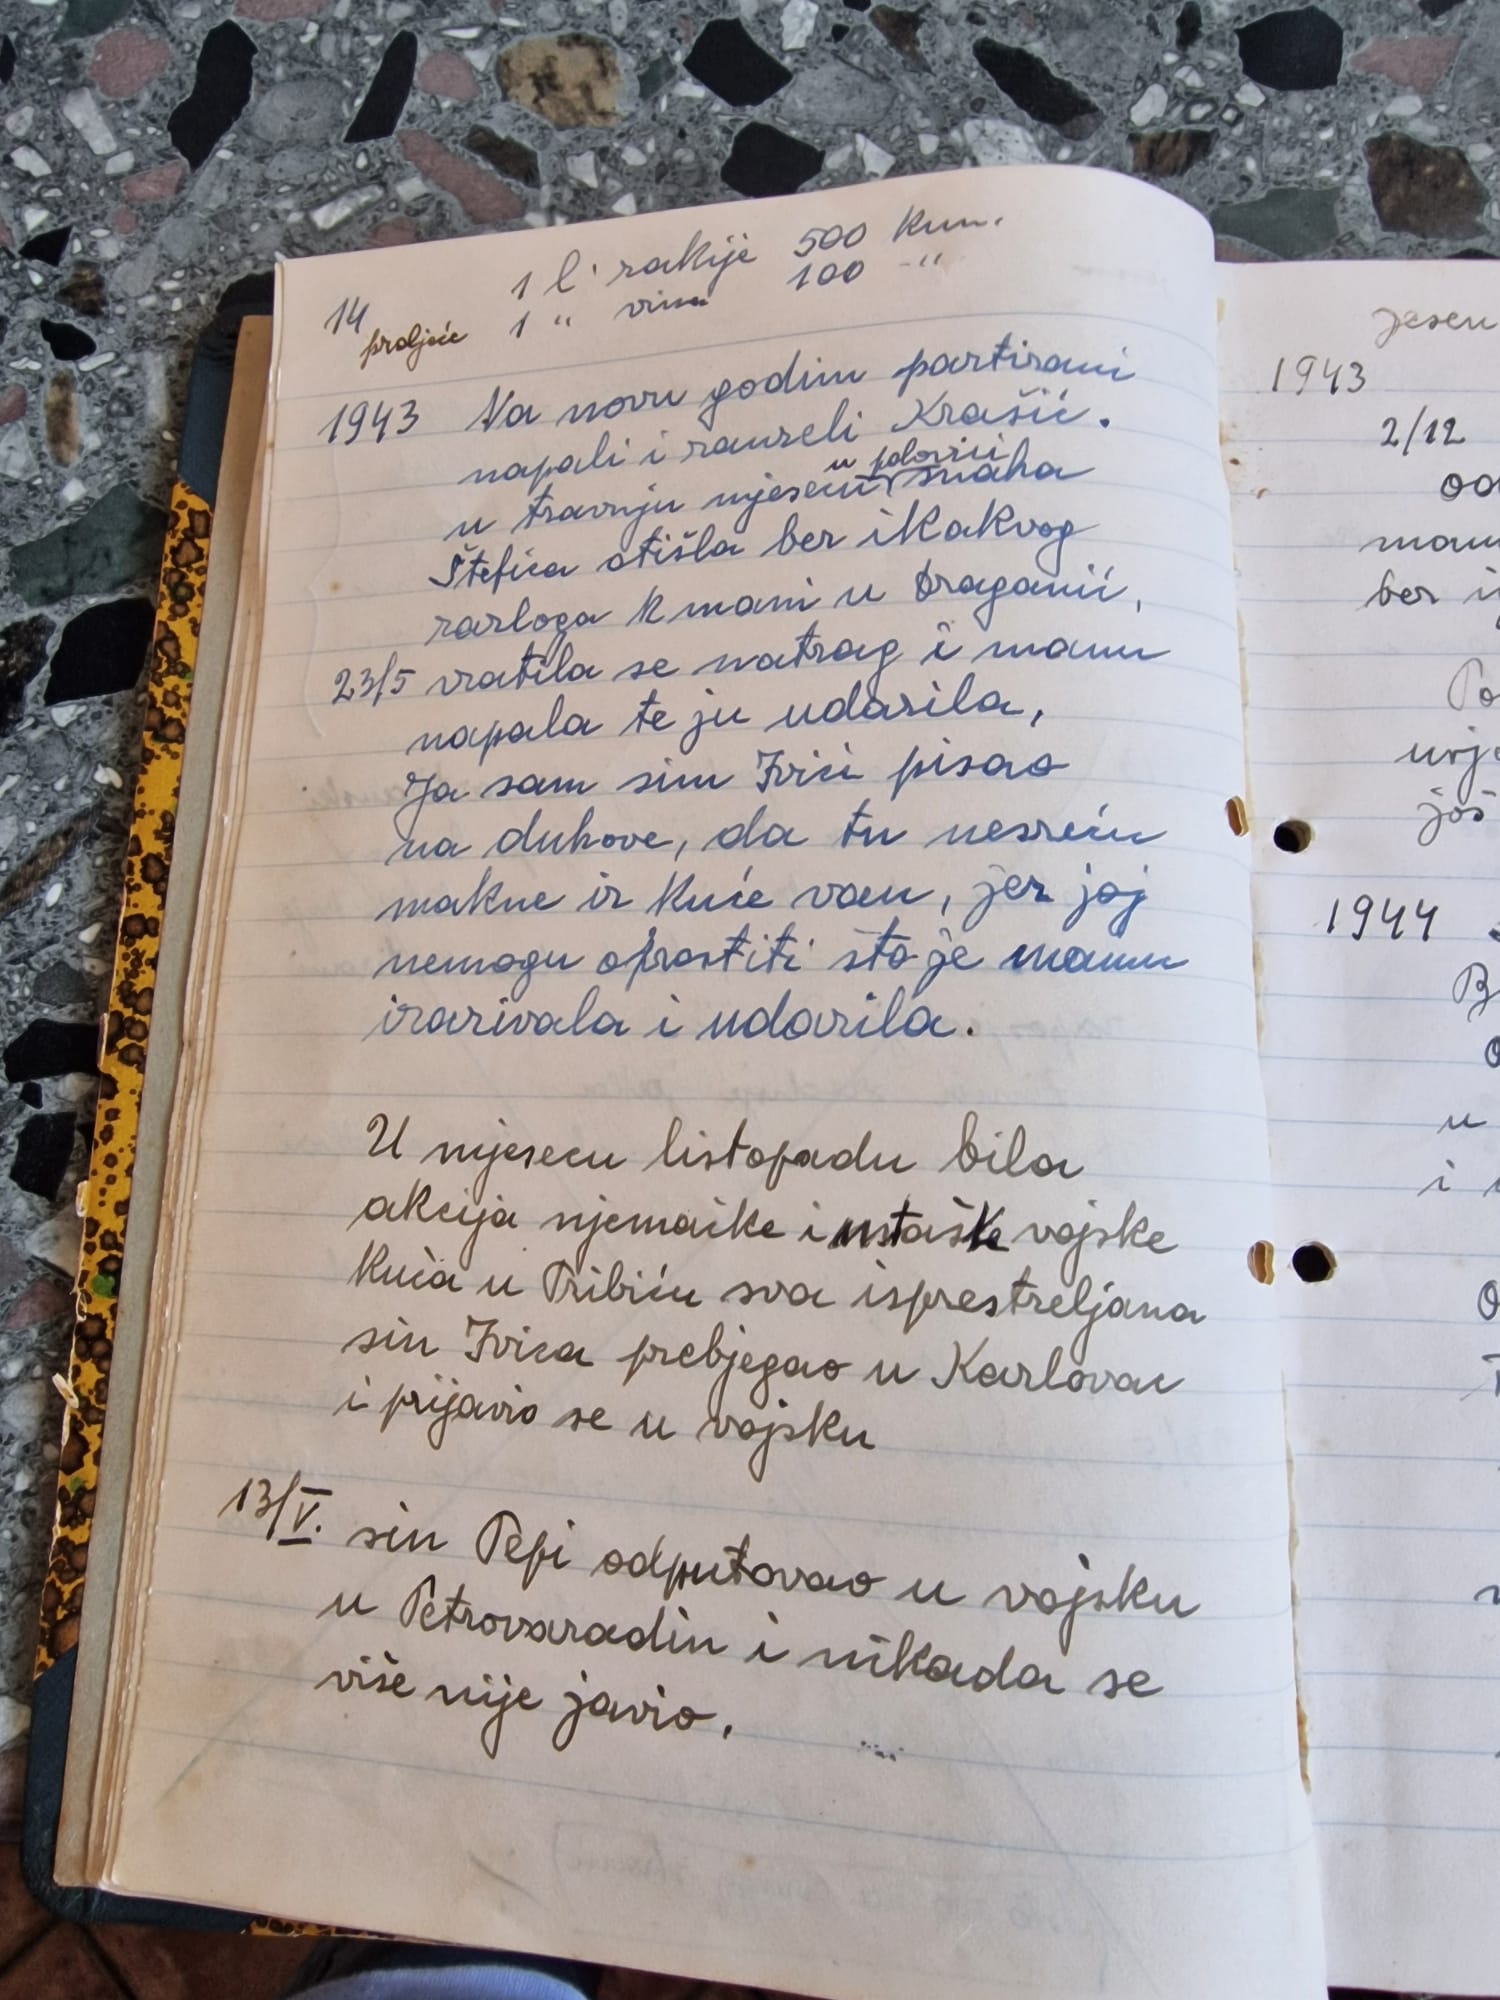 1 l. rakije 500 kun.
14 proljeće 1 " vina 100 -"
1943 Na novu godinu partizani
napali i zauzeli Krašić.
u polovici
u travnju mjesecu snaha
Štefica otišla bez ikakvog
razloga k mami u Draganić,
23/5 vratila se natrag i mamu
napala te ju udarila,
Ja sam sinu Ivici pisao
na duhove, da tu nesreću
makne iz kuće van, jer joj
nemogu oprostiti što je mamu
izazivala i udarila.
U mjesecu listopadu bila
akcija njemačke i ustaške vojske
kuća u Pribiću sva isprestreljana
sin Ivica prebjegao u Karlovac
i prijavio se u vojsku
13/V. sin Pepi odputovao u vojsku
u Petrovaradin i nikada se
više nije javio.
jesen
1943
2/12
bez
još
1944
u
i